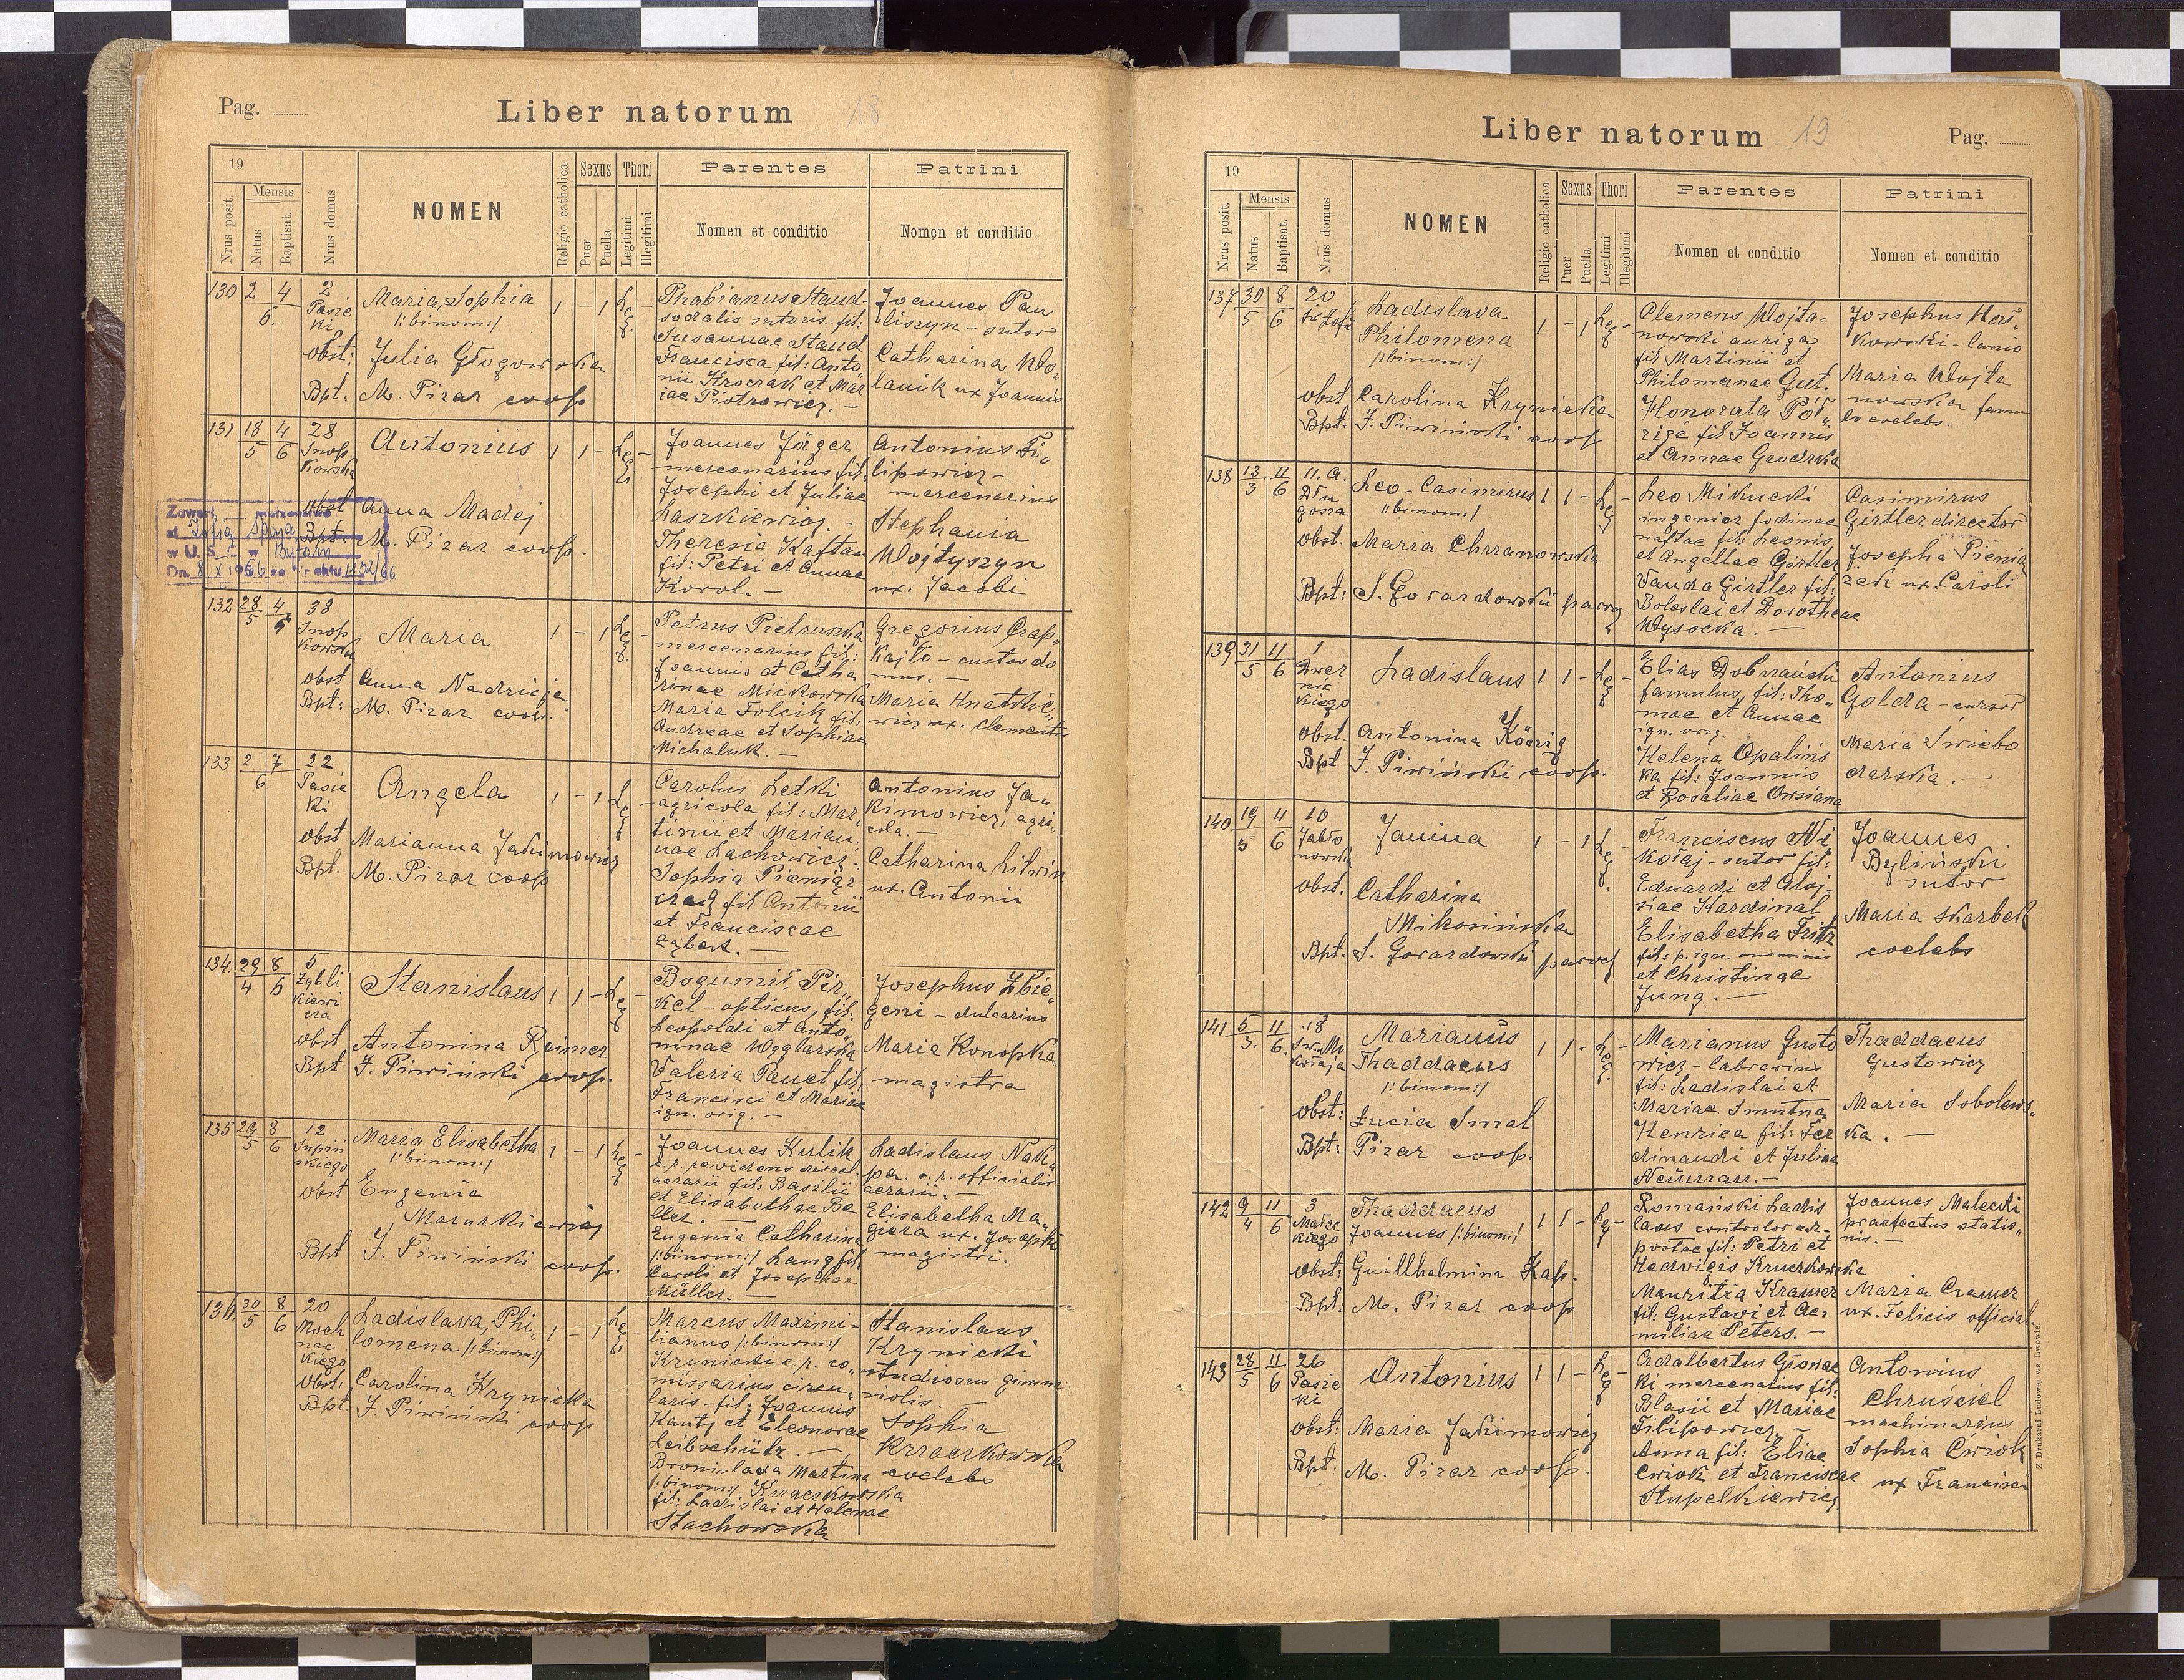 Pag.
Liber natorum
18
19
Nrus posit.
Mensis
Natus
Baptisat.
Nrus domus
NOMEN
Religio catholica
Sexus
Puer
Puella
Thori
Legitimi
Illegitimi
Parentes
Nomen et conditio
Patrini
Nomen et conditio
130 2 4
6.
2
Pasie
ki
Maria, Sophia
/:binom:/
1 - 1 Leg. -
obst: Julia Głogowska
Bpt: M. Pizar coop
Phabianus Staud-
sodalis sutoris fil:
Susannae Staud
Francisca fil: Anto
nii Kroczak et Mar
iae Piotrowicz. -
Joannes Pau
liszyn - sutor
Catharina Wo„
lanik ux Joannis
131 18 4
5 6
28
Snop
kowska
Antonius
1 1 - Leg -
obst Anna Madej
Bpt: M. Pizar coop.
Joannes Jäger
mercenarius fil:
Josephi et Juliae
Laszkiewicz. -
Theresia Kaftan
fil: Petri et Annae
Korol. -
Antonius Fi„
lipowicz -
mercenarius
Stephania
Wojtyszyn
ux. Jacobi
Zawarł małżeństwo
w U. S. C. w Bytom
132 28 4
5 6
38
Snop
kowska
Maria
1 - 1 Leg. -
obst Anna Nadzieja
Bpt: M. Pizar coop.
Petrus Pietruszka
mercenarius fil:
Joannis et Catha
rinae Mićkowska
Maria Folcik fil:
Andreae et Sophiae
Michaluk. -
Gregorius Czap„
kajło - custos do
mus. -
Maria Hnatkie„
wicz ux. Clementis
133 2 7
6
22
Pasie
ki
Angela
1 - 1 Leg -
obst Marianna Jakimowicz
Bpt. M. Pizar coop
Carolus Letki
agricola fil: Mar„
tinii et Marian„
nae Lachowicz.
Sophia Pieniąż
czak fil Antonii
et Franciscae
Ząbek. -
Antonius Ja„
kimowicz, agri„
cola. -
Catharina Litwin
ux. Antonii
134. 29 8
4 6
5
Zybli
kiewi
cza
Stanislaus
1 1 - Leg -
obst Antonina Reimer
Bpt J. Piwiński coop.
Bogumił Pir„
kel - opticus, fil:
Leopoldi et Anto„
ninae Węglarska
Valeria Pauct fil:
Francisci et Mariae
ign. orig. -
Josephus Zbie„
geni - dulcarius
Maria Konopka
magistra
135 29 8
5 6
12
Supiń
skiego
Maria Elisabetha
/:binom:/
1 - 1 Leg -
obst Eugenia
Mazurkiewicz
Bpt J. Piwiński coop.
Joannes Kulik
c. r. revidens direct.
aerarii fil: Basilii
et Elisabethae Be
ller. -
Eugenia Catharina
/:binom:/ Lang fil:
Caroli et Josephae
Müller. -
Ladislaus Nak„
pa. c. r. officialis
aerarii. -
Elisabetha Ma„
giera ux. Josephi
magistri.
136. 30 8
5 6
20
Moch
nac
kiego
Ladislava, Phi„
lomena /:binom:/
1 - 1 Leg -
obst: Carolina Krynicka
Bpt. J. Piwiński coop
Marcus Maximi-
lianus /:binom:/
Krynicki c. r. co„
missarius circu„
laris - fil: Joannis
Kanty et Eleonorae
Leibschütz. -
Bronislava Martina
/:binom:/ Krzaczkowska
fil: Ladislai et Helenae
Stachowska
Stanislaus
Krynicki
studiosus gimna
siolis. -
Sophia
Krzaczkowska
coelebs
Liber natorum
19
Pag.
19
Nrus posit.
Mensis
Natus
Baptisat.
Nrus domus
NOMEN
Religio catholica
Sexus
Puer
Puella
Thori
Legitimi
Illegitimi
Parentes
Nomen et conditio
Patrini
Nomen et conditio
137 30 8
5 6
20
Ladislava
Philomena
/:binom:/
1 - 1 Leg -
obst Carolina Krynicka
Bpt. J. Piwiński coop
Clemens Wojta=
nowski auriga
fil Martinii et
Philomenae Gut.
Honorata Pół„
fil Joannis
et Annae Grodzka
Josephus
kowski - lanio
Maria Wojta
nowska famu
la coelebs.
138 13 11
3 6
11. a.
Dłu
gosza
Leo - Casimirus
/:binom:/
1 1 - Leg -
obst. Maria Chrzanowska
Bpt: S. Gorazdowski paroch
Leo Mikucki
ingenier fodinae
naftae fil: Leonis
et Angellae Girtler
Vanda Girtler fil:
Boleslai et Dorotheae
Wysocka. -
Casimirus
Girtler director
Josepha Pienią
zek ux. Caroli
139 31 11
5 6
1
Dwer
nic
kiego
Ladislaus
1 1 - Leg -
obst. Antonina König
Bpt J. Piwiński coop.
Elias Dobrzański
famulus, fil: Tho„
mae et Annae
ign. orig.
Helena Opaliń
ka fil: Joannis
et Rosaliae Owsiana
Antonius
Golda - cursor
Maria Świebo
darska. -
140 19 11
5 6
10
Jabło
nowska
Janina
1 - 1 Leg. -
obst. Catharina
Mikosińska
Bpt. S. Gorazdowski paroch
Franciscus Mi
kołaj - sutor fil:
Eduardi et Aloj=
siae Kardinal
Elisabetha Fritz
fil: p. ign.
et Christinae
Jung. -
Joannes
Byliński
sutor
Maria Skarbek
coelebs
141 5 11
3. 6.
18
Św. Mi
kołaja
Marianus
Thaddaeus
/:binom:/
1 1 - Leg. -
obst: Łucia Smal
Bpt: Pizar coop.
Marianus Gusto
wicz - librarius
fil: Ladislai et
Mariae Smutna
Henrica fil: Fer
dinandi et Juliae
Neuman. -
Thaddaeus
Gustowicz
Maria Sobolews„
ka. -
142 9 11
4 6
3
Małec
kiego
Thaddaeus
Joannes /:binom:/
1 1 - Leg -
obst: Guillhelmina Kap.
Bpt: M. Pizar coop
Romański Ladis
laus controlor
postae fil: Petri et
Hedvigis Kruczkowska
Mauritza Kramer
fil: Gustavi et Ae„
miliae Peters. -
Joannes Malecki
praefectus statio„
nis. -
Maria Cramer
ux. Felicis official.
143 28 11
5 6
26
Pasie
ki
Antonius
1 1 - Leg -
obst: Maria Jakimowicz
Bpt: M. Pizar coop.
Adalbertus Głowac
ki mercenarius fil:
Blasii et Mariae
Filipowicz.
Anna fil: Eliae
Ćwiok et Franciscae
Stupelkiewicz
Antonius
Chruściel
machinarius
Sophia Ćwiok
ux Francisci
Z Drukarni Ludowej we Lwowie.